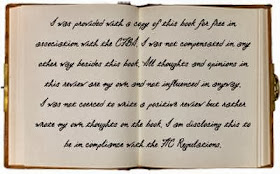 I was provided with a copy of this book for free in
association with the CFBA. I was not compensated in any
other way besides this book. All thoughts and opinions in
this review are my own and not influenced in anyway.
I was not coerced to write a positive review but rather
wrote my own thoughts on the book. I am disclosing this to
be in compliance with the FTC Regulations.